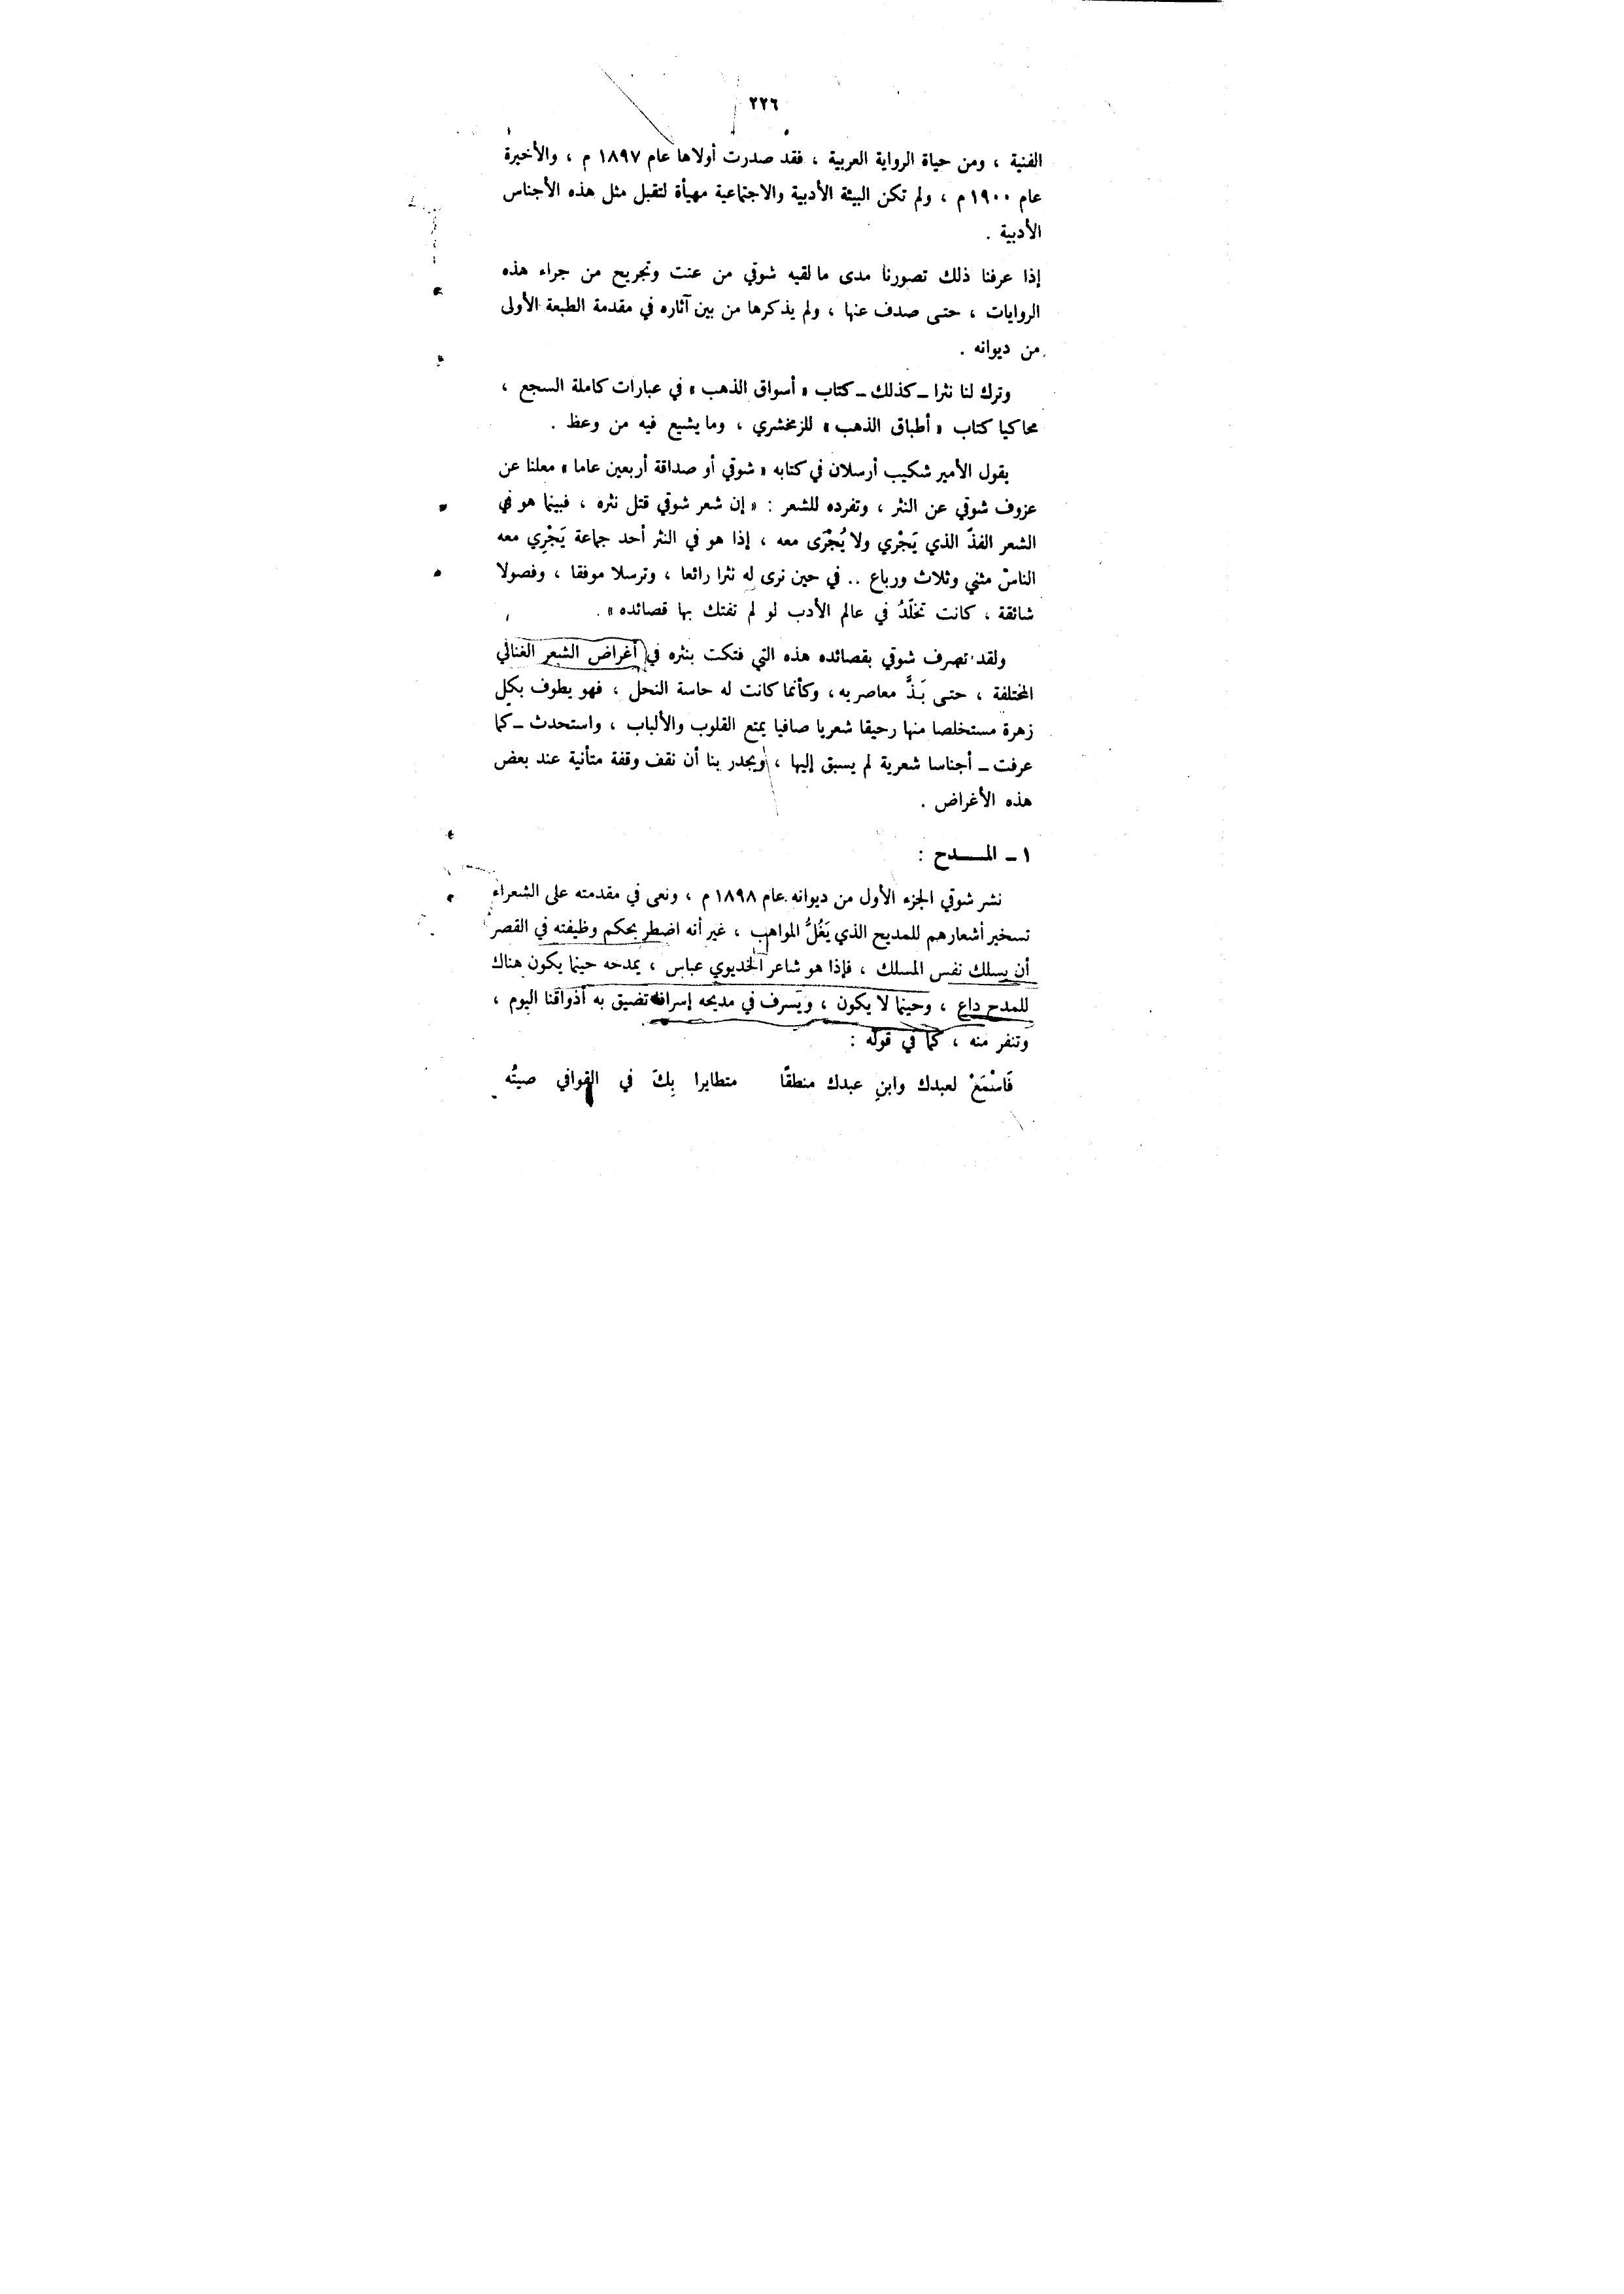 ٢٢٦
الفنية ، ومن حياة الرواية العربية ، فقد صدرت أولاها عام ١٨٩٧ م ، والأخيرة
عام ١٩٠٠ م ، ولم تكن البيئة الأدبية والاجتماعية مهيأة لتقبل مثل هذه الأجناس
الأدبية .
إذا عرفنا ذلك تصورنا مدى ما لقيه شوقي من عنت وتجريح من جراء هذه
الروايات ، حتى صدف عنها ، ولم يذكرها من بين آثاره في مقدمة الطبعة الأولى
من ديوانه .
وترك لنا نثرا ـ كذلك ـ كتاب « أسواق الذهب » في عبارات كاملة السجع ،
محاكيا كتاب « أطباق الذهب » للزمخشري ، وما يشيع فيه من وعظ .
يقول الأمير شكيب أرسلان في كتابه « شوقي أو صداقة أربعين عاما » معلنا عن
عزوف شوقي عن النثر ، وتفرده للشعر : « إن شعر شوقي قتل نثره ، فبينما هو في
الشعر الفذّ الذي يَجْري ولا يُجْرَى معه ، إذا هو في النثر أحد جماعة يَجْرِي معه
الناسْ مثنى وثلاث ورباع .. في حين نرى له نثرا رائعا ، وترسلا موفقا ، وفصولا
شائقة ، كانت تخلّدُ في عالم الأدب لو لم تفتك بها قصائده » .
ولقد تصرف شوقي بقصائده هذه التي فتكت بنثره في أغراض الشعر الغنائي
المختلفة ، حتى بَذَّ معاصريه ، وكأنما كانت له حاسة النحل ، فهو يطوف بكل
زهرة مستخلصا منها رحيقا شعريا صافيا يمتع القلوب والألباب ، واستحدث ـ كما
عرفت ـ أجناسا شعرية لم يسبق إليها ، ويجدر بنا أن نقف وقفة متأنية عند بعض
هذه الأغراض .
١ ـ المـــدح :
نشر شوقي الجزء الأول من ديوانه عام ١٨٩٨ م ، ونعى في مقدمته على الشعراء
تسخير أشعارهم للمديح الذي يَغُلُّ المواهب ، غير أنه اضطر بحكم وظيفته في القصر
أن يسلك نفس المسلك ، فإذا هو شاعر الخديوي عباس ، يمدحه حينما يكون هناك
للمدح داع ، وحينما لا يكون ، ويسرف في مديحه إسرافا تضيق به أذواقنا اليوم ،
وتنفر منه ، كما في قوله :
فَاسْمَعْ لعبدك وابنِ عبدك منطقًا متطايرا بِكَ في القوافي صيتُه